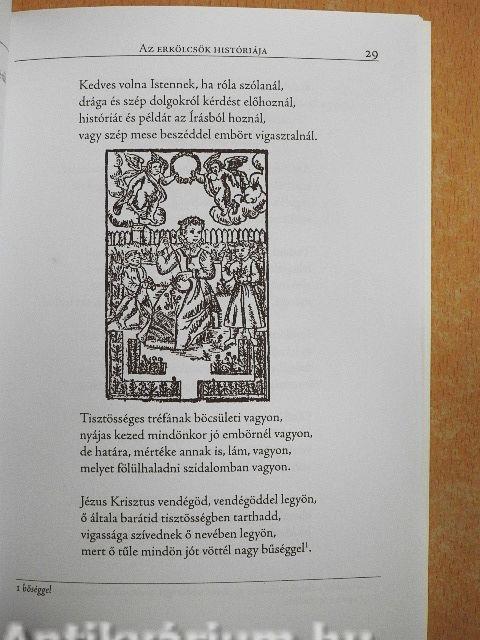 Az erkölcsök históriája
29
Kedves volna Istennek, ha róla szólanál,
drága és szép dolgokról kérdést előhoznál,
históriát és példát az Írásból hoznál,
vagy szép mese beszéddel embört vigasztalnál.
Tisztösséges tréfának böcsületi vagyon,
nyájas kezed mindönkor jó embörnél vagyon,
de határa, mértéke annak is, lám, vagyon,
melyet fölülhaladni szidalomban vagyon.
Jézus Krisztus vendégöd, vendégöddel legyön,
ő általa barátid tisztösségben tarthadd,
vigassága szívednek ő nevében legyön,
mert ő tűle mindön jót vöttél nagy bűséggel¹.
1 bőséggel
Antikvárium.hu